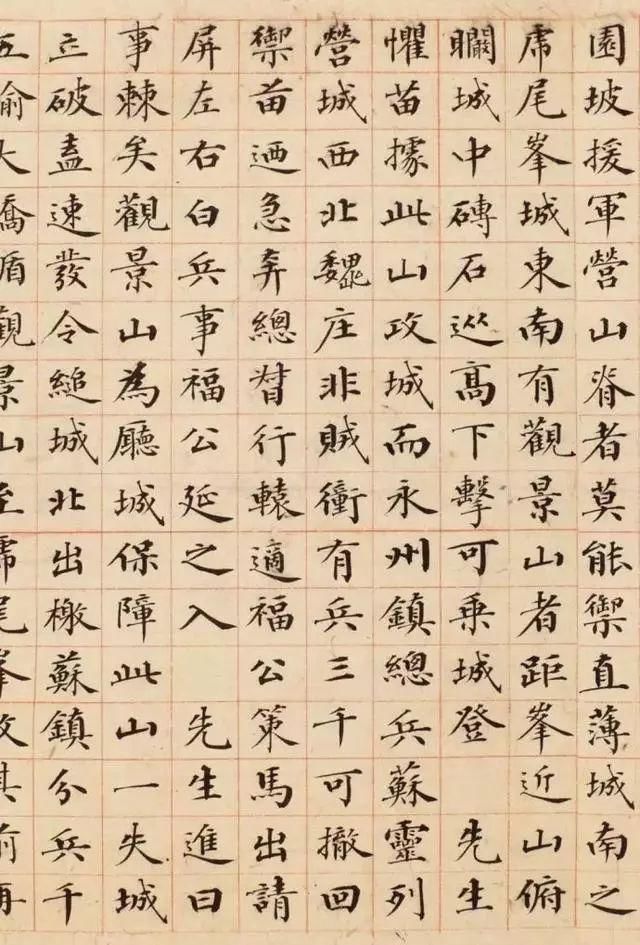 園坡援軍營山脊者莫能禦直薄城南之
虎尾峯城東南有觀景山者距峯近山俯
矙城中磚石從高下擊可乗城登 先生
懼苗據此山攻城而永州鎮總兵蘇靈列
營城西北魏庄非賊衝有兵三千可撤回
禦苗迺急奔總督行轅適福公策馬出請
屏左右白兵事福公延之入 先生進曰
事棘矣觀景山為廳城保障此山一失城
立破盍速發令縋城北出檄蘇鎮分兵千
觀景山至虎尾峯攻其前再